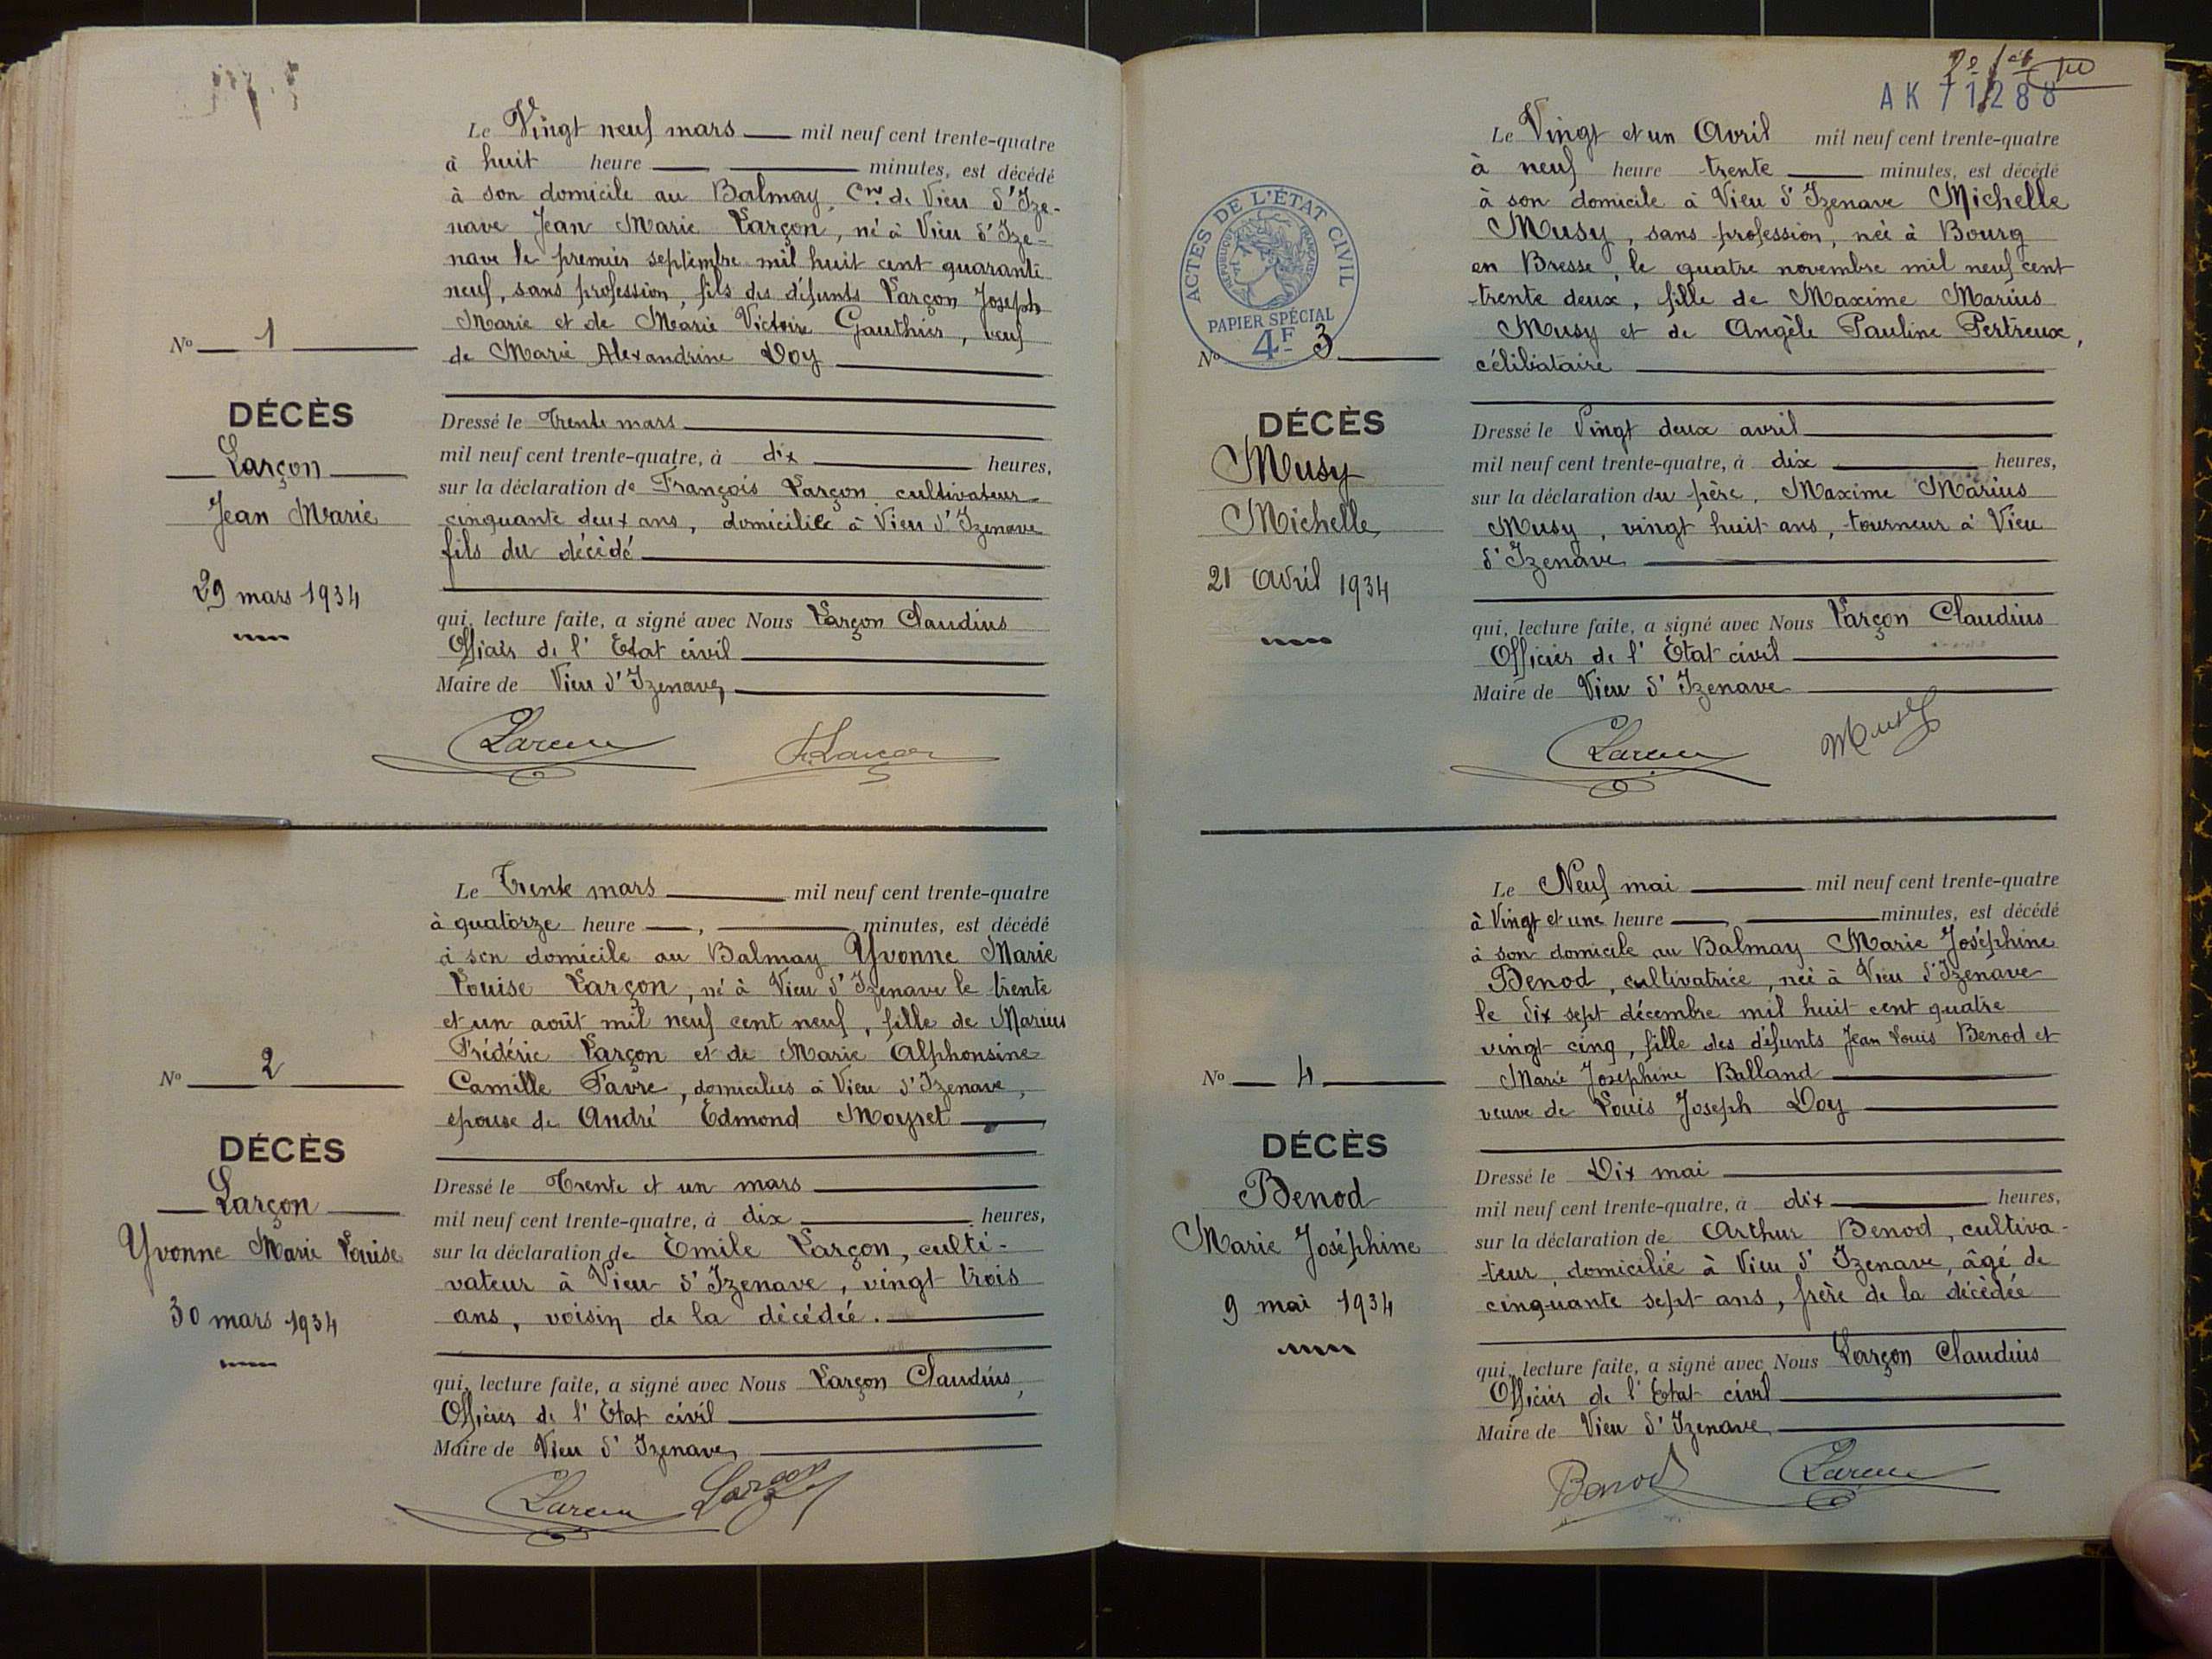 Le Vingt neuf mars mil neuf cent trente-quatre
à huit heure minutes, est décédé
à son domicile au Balmay, Cne de Vieu d'Ize-
nave Jean Marie Larçon, né à Vieu d'Ize-
nave le premier septembre mil huit cent quarante
neuf, sans profession, fils des défunts Larçon Joseph
Marie et de Marie Victoire Gauthier, veuf
de Marie Alexandrine Doy
No 1
DÉCÈS
Larçon
Jean Marie
29 mars 1934
Dressé le Trente mars
mil neuf cent trente-quatre, à dix heures,
sur la déclaration de François Larçon cultivateur
cinquante deux ans, domicilié à Vieu d'Izenave
fils du décédé
qui, lecture faite, a signé avec Nous Larçon Claudius
Officier de l'Etat civil
Maire de Vieu d'Izenave,
Larçon F. Larçon
Le Trente mars mil neuf cent trente-quatre
à quatorze heure , minutes, est décédé
à son domicile au Balmay Yvonne Marie
Louise Larçon, né à Vieu d'Izenave le trente
et un août mil neuf cent neuf, fille de Marius
Frédéric Larçon et de Marie Alphonsine
Camille Favre, domiciliés à Vieu d'Izenave,
épouse de André Edmond Moyret
No 2
DÉCÈS
Larçon
Yvonne Marie Louise
30 mars 1934
Dressé le Trente et un mars
mil neuf cent trente-quatre, à dix heures,
sur la déclaration de Emile Larçon, culti-
vateur à Vieu d'Izenave, vingt trois
ans, voisin de la décédée.
qui, lecture faite, a signé avec Nous Larçon Claudius,
Officier de l'Etat civil
Maire de Vieu d'Izenave,
Larçon Larçon
AK 71288
Le Vingt et un Avril mil neuf cent trente-quatre
à neuf heure trente minutes, est décédé
à son domicile à Vieu d'Izenave Michelle
Musy, sans profession, née à Bourg
en Bresse, le quatre novembre mil neuf cent
trente deux, fille de Maxime Marius
Musy et de Angèle Pauline Pertreux,
célibataire
ACTES DE L'ÉTAT CIVIL
RÉPUBLIQUE FRANÇAISE
PAPIER SPÉCIAL
4F
No 3
DÉCÈS
Musy
Michelle
21 Avril 1934
Dressé le Vingt deux avril
mil neuf cent trente-quatre, à dix heures,
sur la déclaration du père, Maxime Marius
Musy, vingt huit ans, tourneur à Vieu
d'Izenave
qui, lecture faite, a signé avec Nous Larçon Claudius
Officier de l'Etat civil
Maire de Vieu d'Izenave
Larçon Musy
Le Neuf mai mil neuf cent trente-quatre
à Vingt et une heure , minutes, est décédé
à son domicile au Balmay Marie Joséphine
Benod, cultivatrice, née à Vieu d'Izenave
le dix sept décembre mil huit cent quatre
vingt cinq, fille des défunts Jean Louis Benod et
Marie Josephine Balland
veuve de Louis Joseph Doy
No 4
DÉCÈS
Benod
Marie Joséphine
9 mai 1934
Dressé le Dix mai
mil neuf cent trente-quatre, à dix heures,
sur la déclaration de Arthur Benod, cultiva-
teur, domicilié à Vieu d'Izenave, âgé de
cinquante sept ans, frère de la décédée
qui, lecture faite, a signé avec Nous Larçon Claudius
Officier de l'Etat civil
Maire de Vieu d'Izenave
Benod Larçon